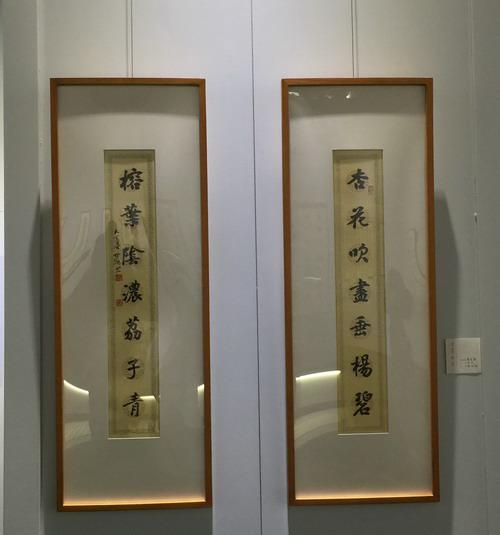 杏花吹盡垂楊碧
榕葉陰濃荔子青